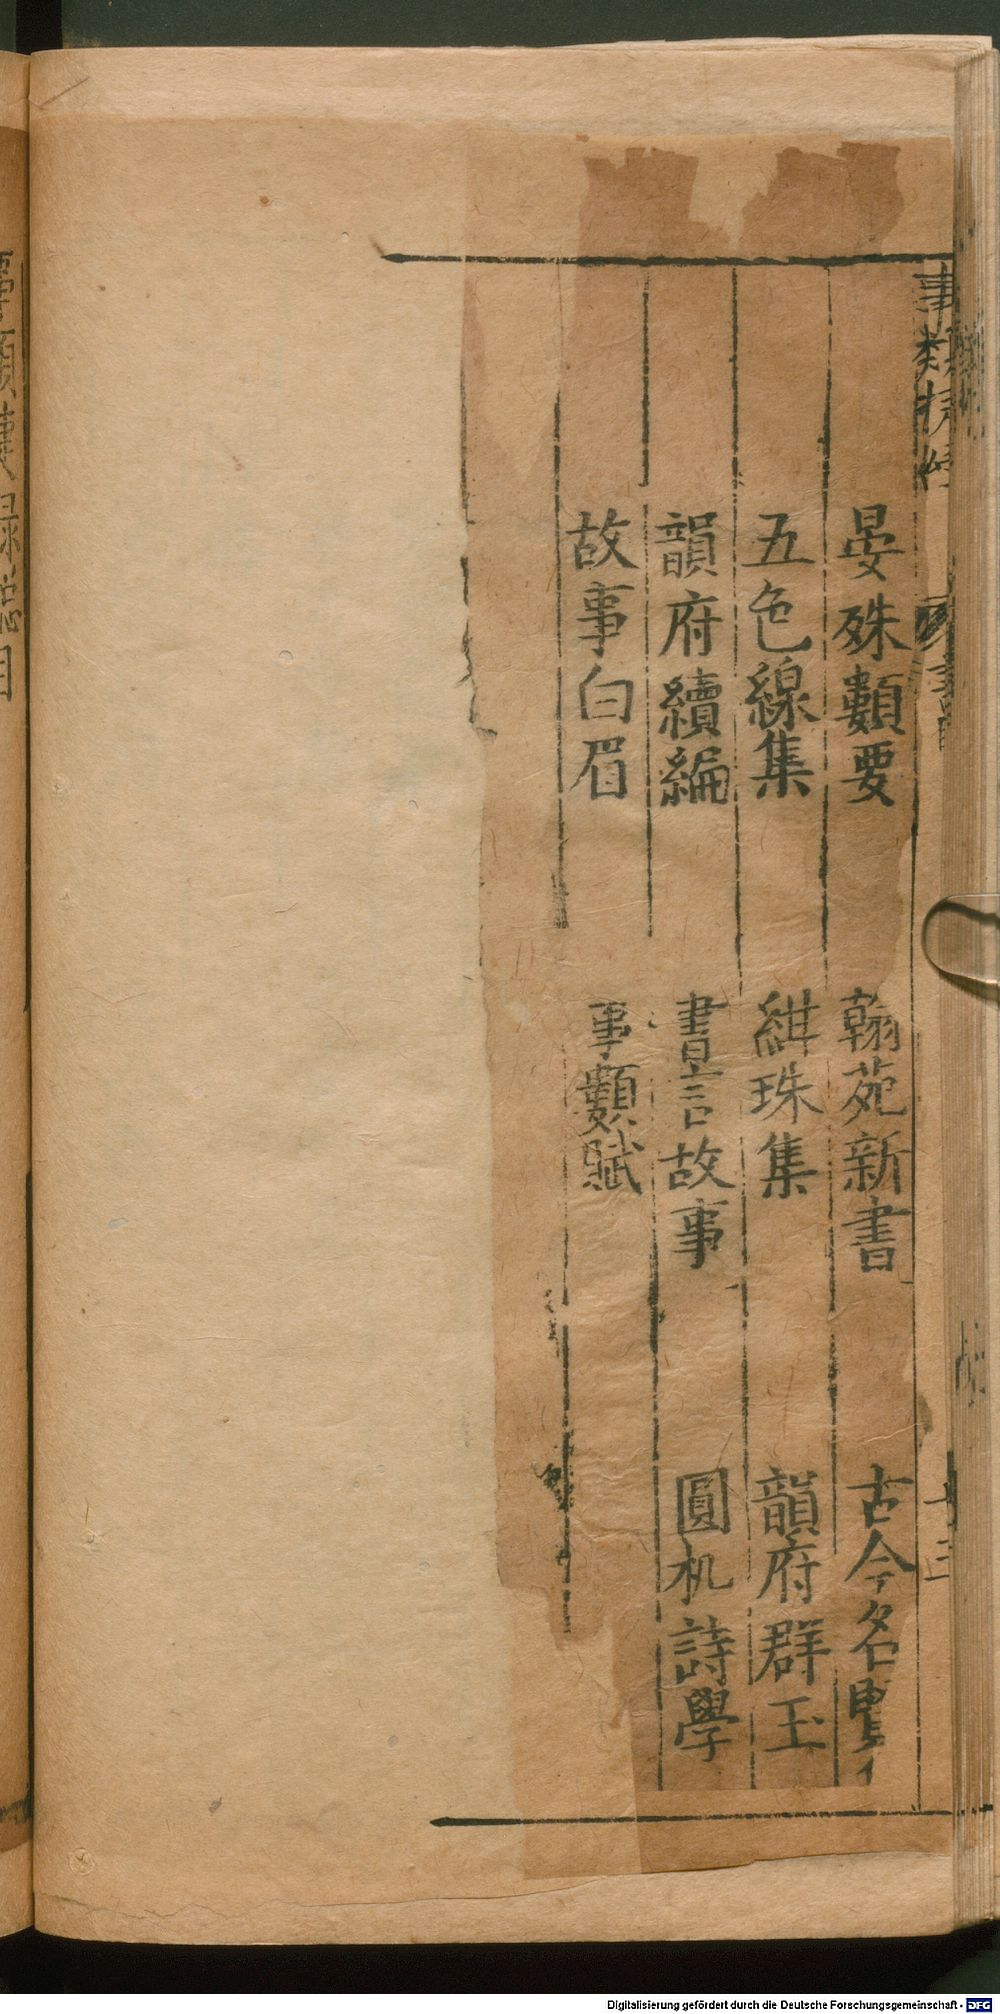 事類捷錄
晏殊類要 翰苑新書 古今名賢
五色線集 紺珠集 韻府群玉
韻府續編 書言故事 圓机詩學
故事白眉 事類賦
Digitalisierung gefördert durch die Deutsche Forschungsgemeinschaft - DFG